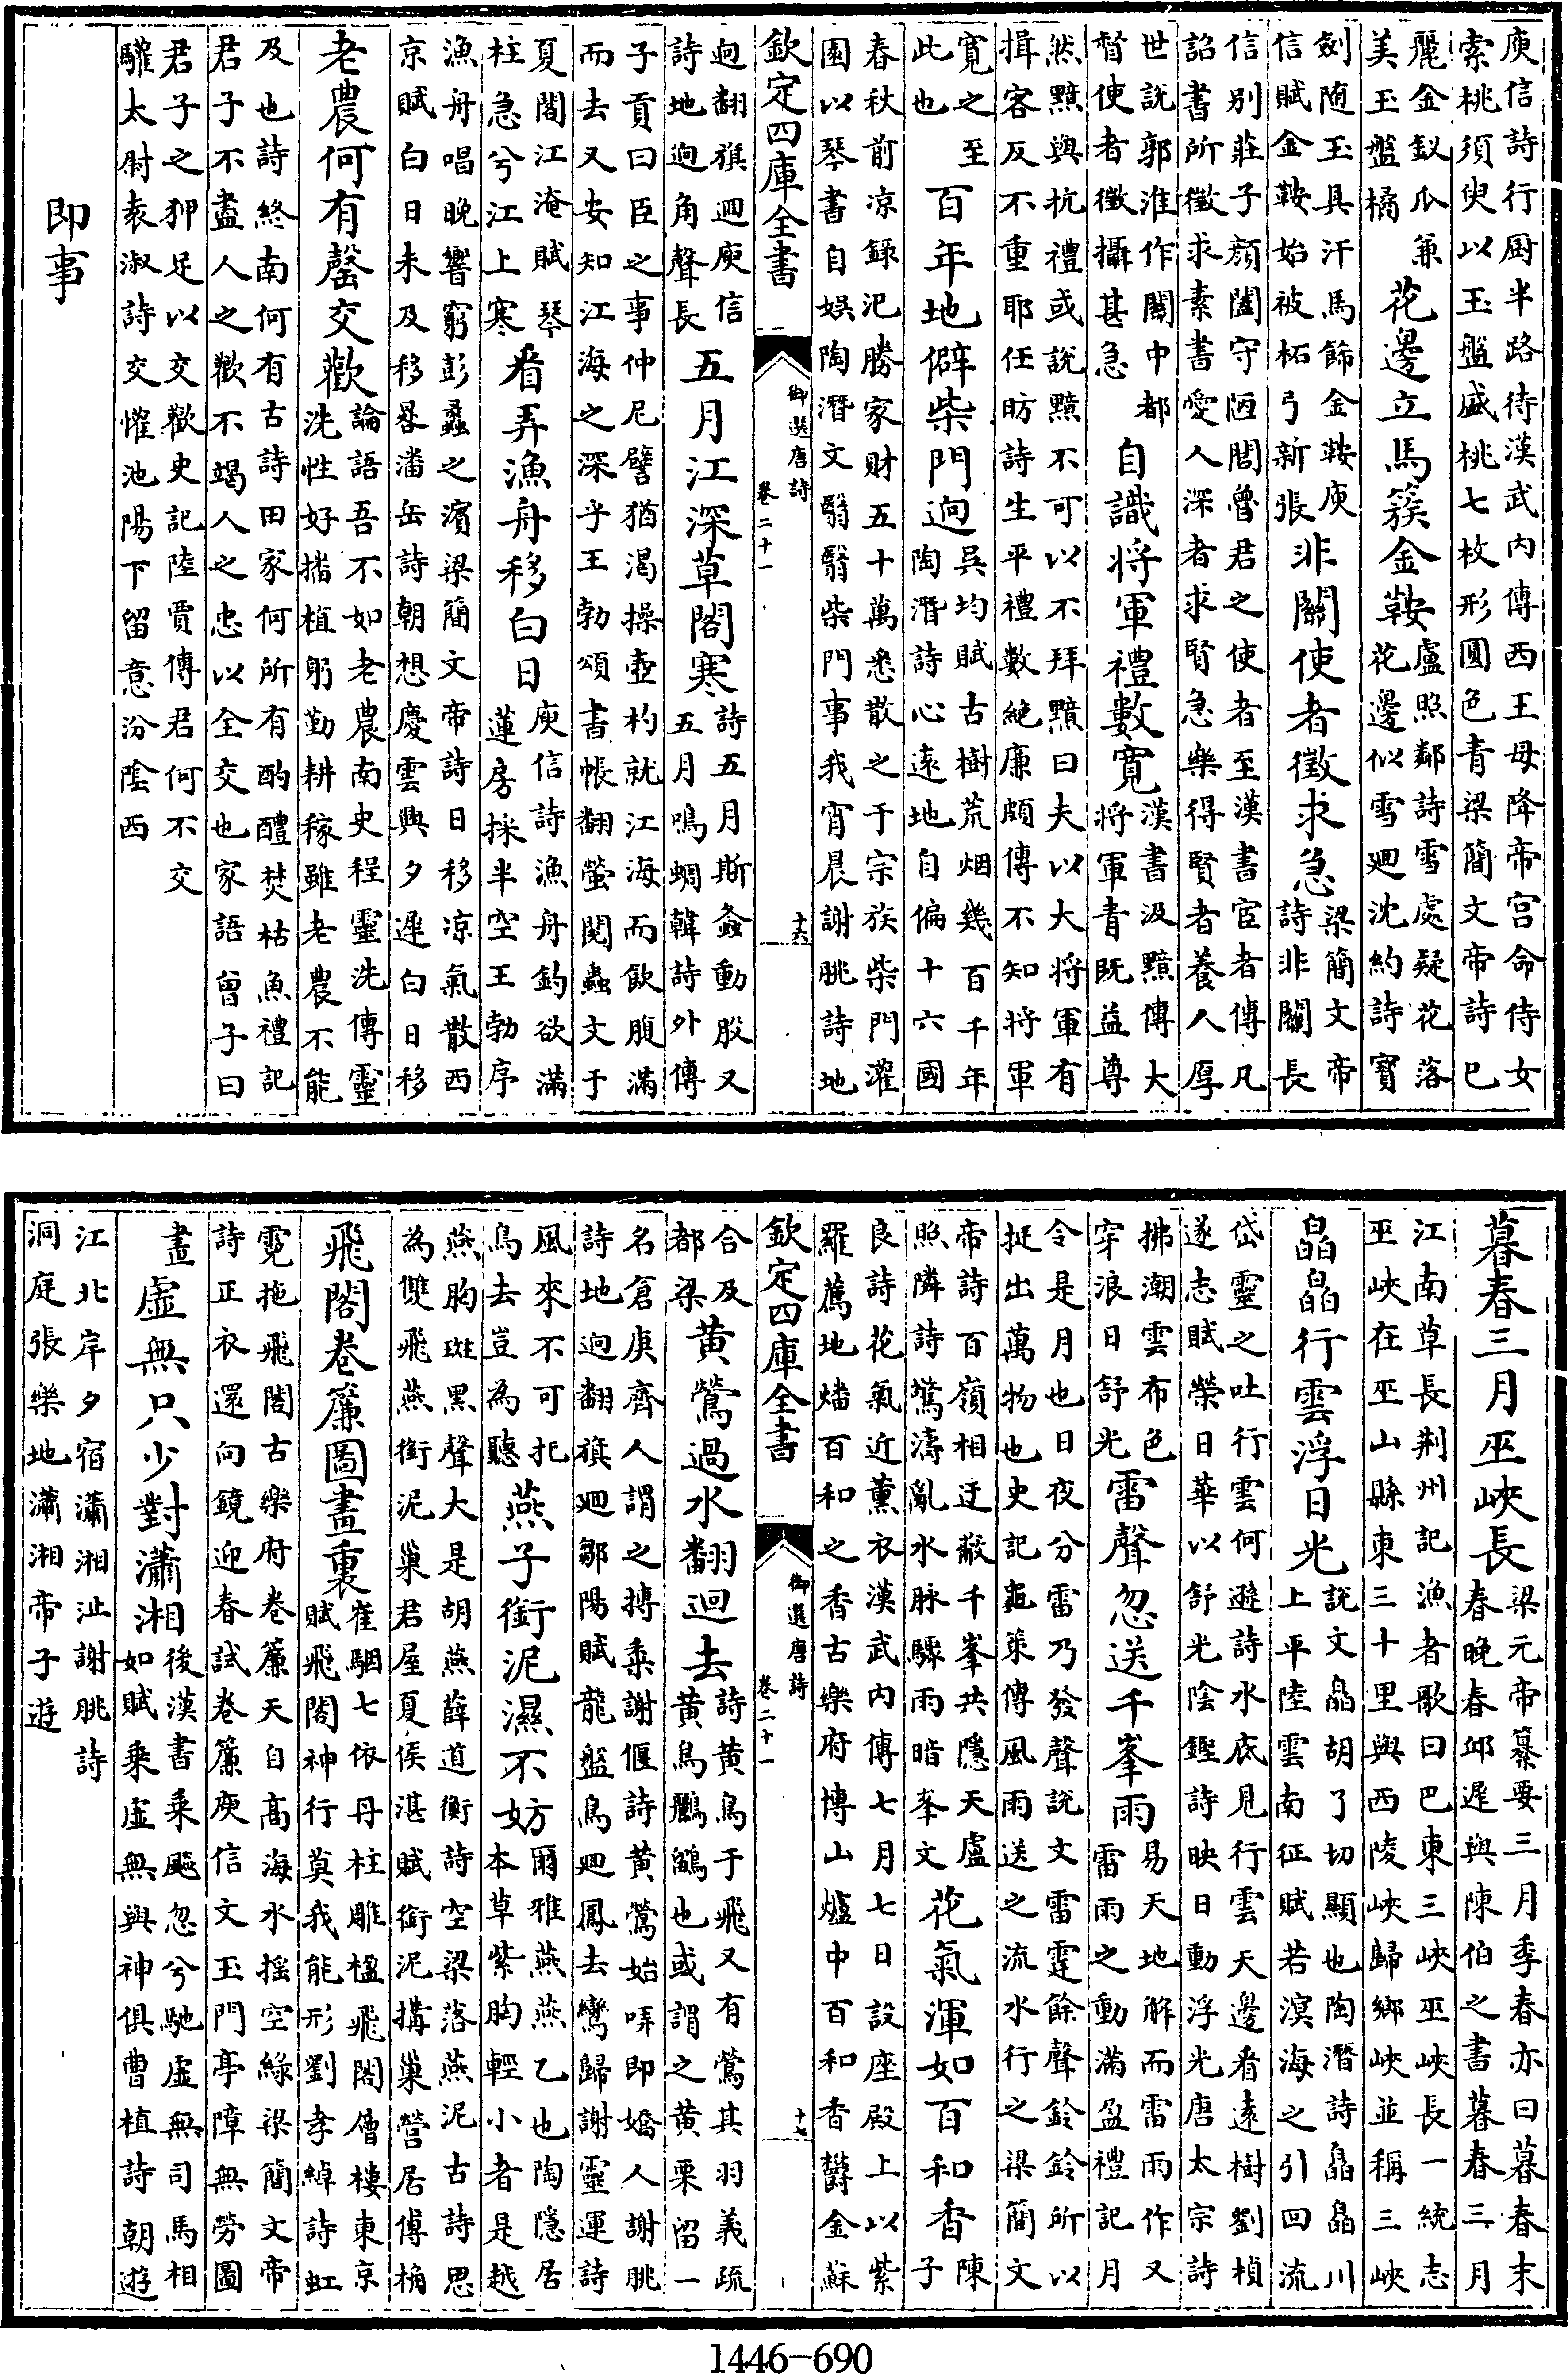 庾信詩行厨半路待漢武内傳西王母降帝宮命侍女
索桃須臾以玉盤盛桃七枚形圓色青梁簡文帝詩已
麗金釵瓜兼美玉盤橘花邊立馬簇金鞍盧照鄰詩雪處疑花落花邊似雪迴沈約詩寳
劍随玉具汗馬飾金鞍庾信賦金鞍始被柘弓新張非關使者徵求急梁簡文帝詩非關長
信别莊子顔闔守陋閭魯君之使者至漢書宦者傳凡
詔書所徵求素書愛人深者求賢急樂得賢者養人厚
世説郭淮作關中都督使者徵攝甚急自識将軍禮數寛漢書汲黯傳大将軍青既益尊
然黯與抗禮或說黯不可以不拜黯曰夫以大将軍有
揖客反不重耶任昉詩生平禮數絶廉頗傳不知将軍
寛之至此也百年地僻柴門逈吳均賦古樹荒烟幾百千年陶潛詩心遠地自偏十六國
春秋前凉録氾勝家財五十萬悉散之于宗族柴門灌
園以琴書自娱陶潛文翳翳柴門事我宵晨謝朓詩地
欽定四庫全書 御選唐詩 卷二十一 十六
逈翻旗迴庾信詩地逈角聲長五月江深草閣寒詩五月斯螽動股又五月鳴蜩韓詩外傳
子貢曰臣之事仲尼譬猶渴操壺杓就江海而飲腹滿
而去又安知江海之深乎王勃頌書帳翻螢閲蟲文于
夏閣江淹賦琴柱急兮江上寒看弄漁舟移白日庾信詩漁舟釣欲滿蓮房採半空王勃序
漁舟唱晚響窮彭蠡之濱梁簡文帝詩日移凉氣散西
京賦白日未及移晷潘岳詩朝想慶雲興夕遲白日移
老農何有罄交歡論語吾不如老農南史程靈洗傳靈洗性好播植躬勤耕稼雖老農不能
及也詩終南何有古詩田家何所有酌醴焚枯魚禮記
君子不盡人之歡不竭人之忠以全交也家語曾子曰
君子之狎足以交歡史記陸賈傳君何不交
驩太尉袁淑詩交懽池陽下留意汾陰西
即事
暮春三月巫峽長梁元帝纂要三月季春亦曰暮春末春晚春邱遲與陳伯之書暮春三月
江南草長荆州記漁者歌曰巴東三峽巫峽長一統志
巫峽在巫山縣東三十里與西陵峽歸鄉峽並稱三峽
皛皛行雲浮日光説文皛胡了切顯也陶潛詩皛皛川上平陸雲南征賦若溟海之引回流
岱靈之吐行雲何遜詩水底見行雲天邊看遠樹劉楨
遂志賦榮日華以舒光陰鏗詩映日動浮光唐太宗詩
拂潮雲布色穿浪日舒光雷聲忽送千峯雨易天地解而雷雨作又雷雨之動滿盈禮記月
令是月也日夜分雷乃發聲說文雷霆餘聲鈴鈴所以
挺出萬物也史記龜筴傳風雨送之流水行之梁簡文
帝詩百嶺相迂蔽千峯共隱天盧照隣詩驚濤亂水脉驟雨暗峯文花氣渾如百和香陳子
良詩花氣近薰衣漢武内傳七月七日設座殿上以紫
羅薦地燔百和之香古樂府博山爐中百和香鬱金蘇
欽定四庫全書 御選唐詩 卷二十一 十七
合及都梁黄鶯過水翻迴去詩黄鳥于飛又有鶯其羽義疏黄鳥鸝鶹也或謂之黄栗留一
名倉庚齊人謂之搏黍謝偃詩黄鶯始哢即嬌人謝朓
詩地逈翻旗迴鄒陽賦龍盤鳥迴鳳去鸞歸謝靈運詩
風來不可扥鳥去豈為聽燕子銜泥濕不妨爾雅燕燕乙也陶隱居本草紫胸輕小者是越
燕胸斑黑聲大是胡燕薛道衡詩空梁落燕泥古詩思
為雙飛燕銜泥巢君屋夏侯湛賦銜泥搆巢營居傅桷
飛閣卷簾圖畫裏崔駰七依丹柱雕楹飛閣層樓東京賦飛閣神行莫我能形劉孝綽詩虹
霓拖飛閣古樂府卷簾天自高海水揺空綠梁簡文帝
詩正衣還向鏡迎春試卷簾庾信文玉門亭障無勞圖
畫虛無只少對瀟湘後漢書乘飈忽兮馳虛無司馬相如賦乘虛無與神俱曹植詩朝遊
江北岸夕宿瀟湘沚謝朓詩
洞庭張樂地瀟湘帝子遊
1446—690